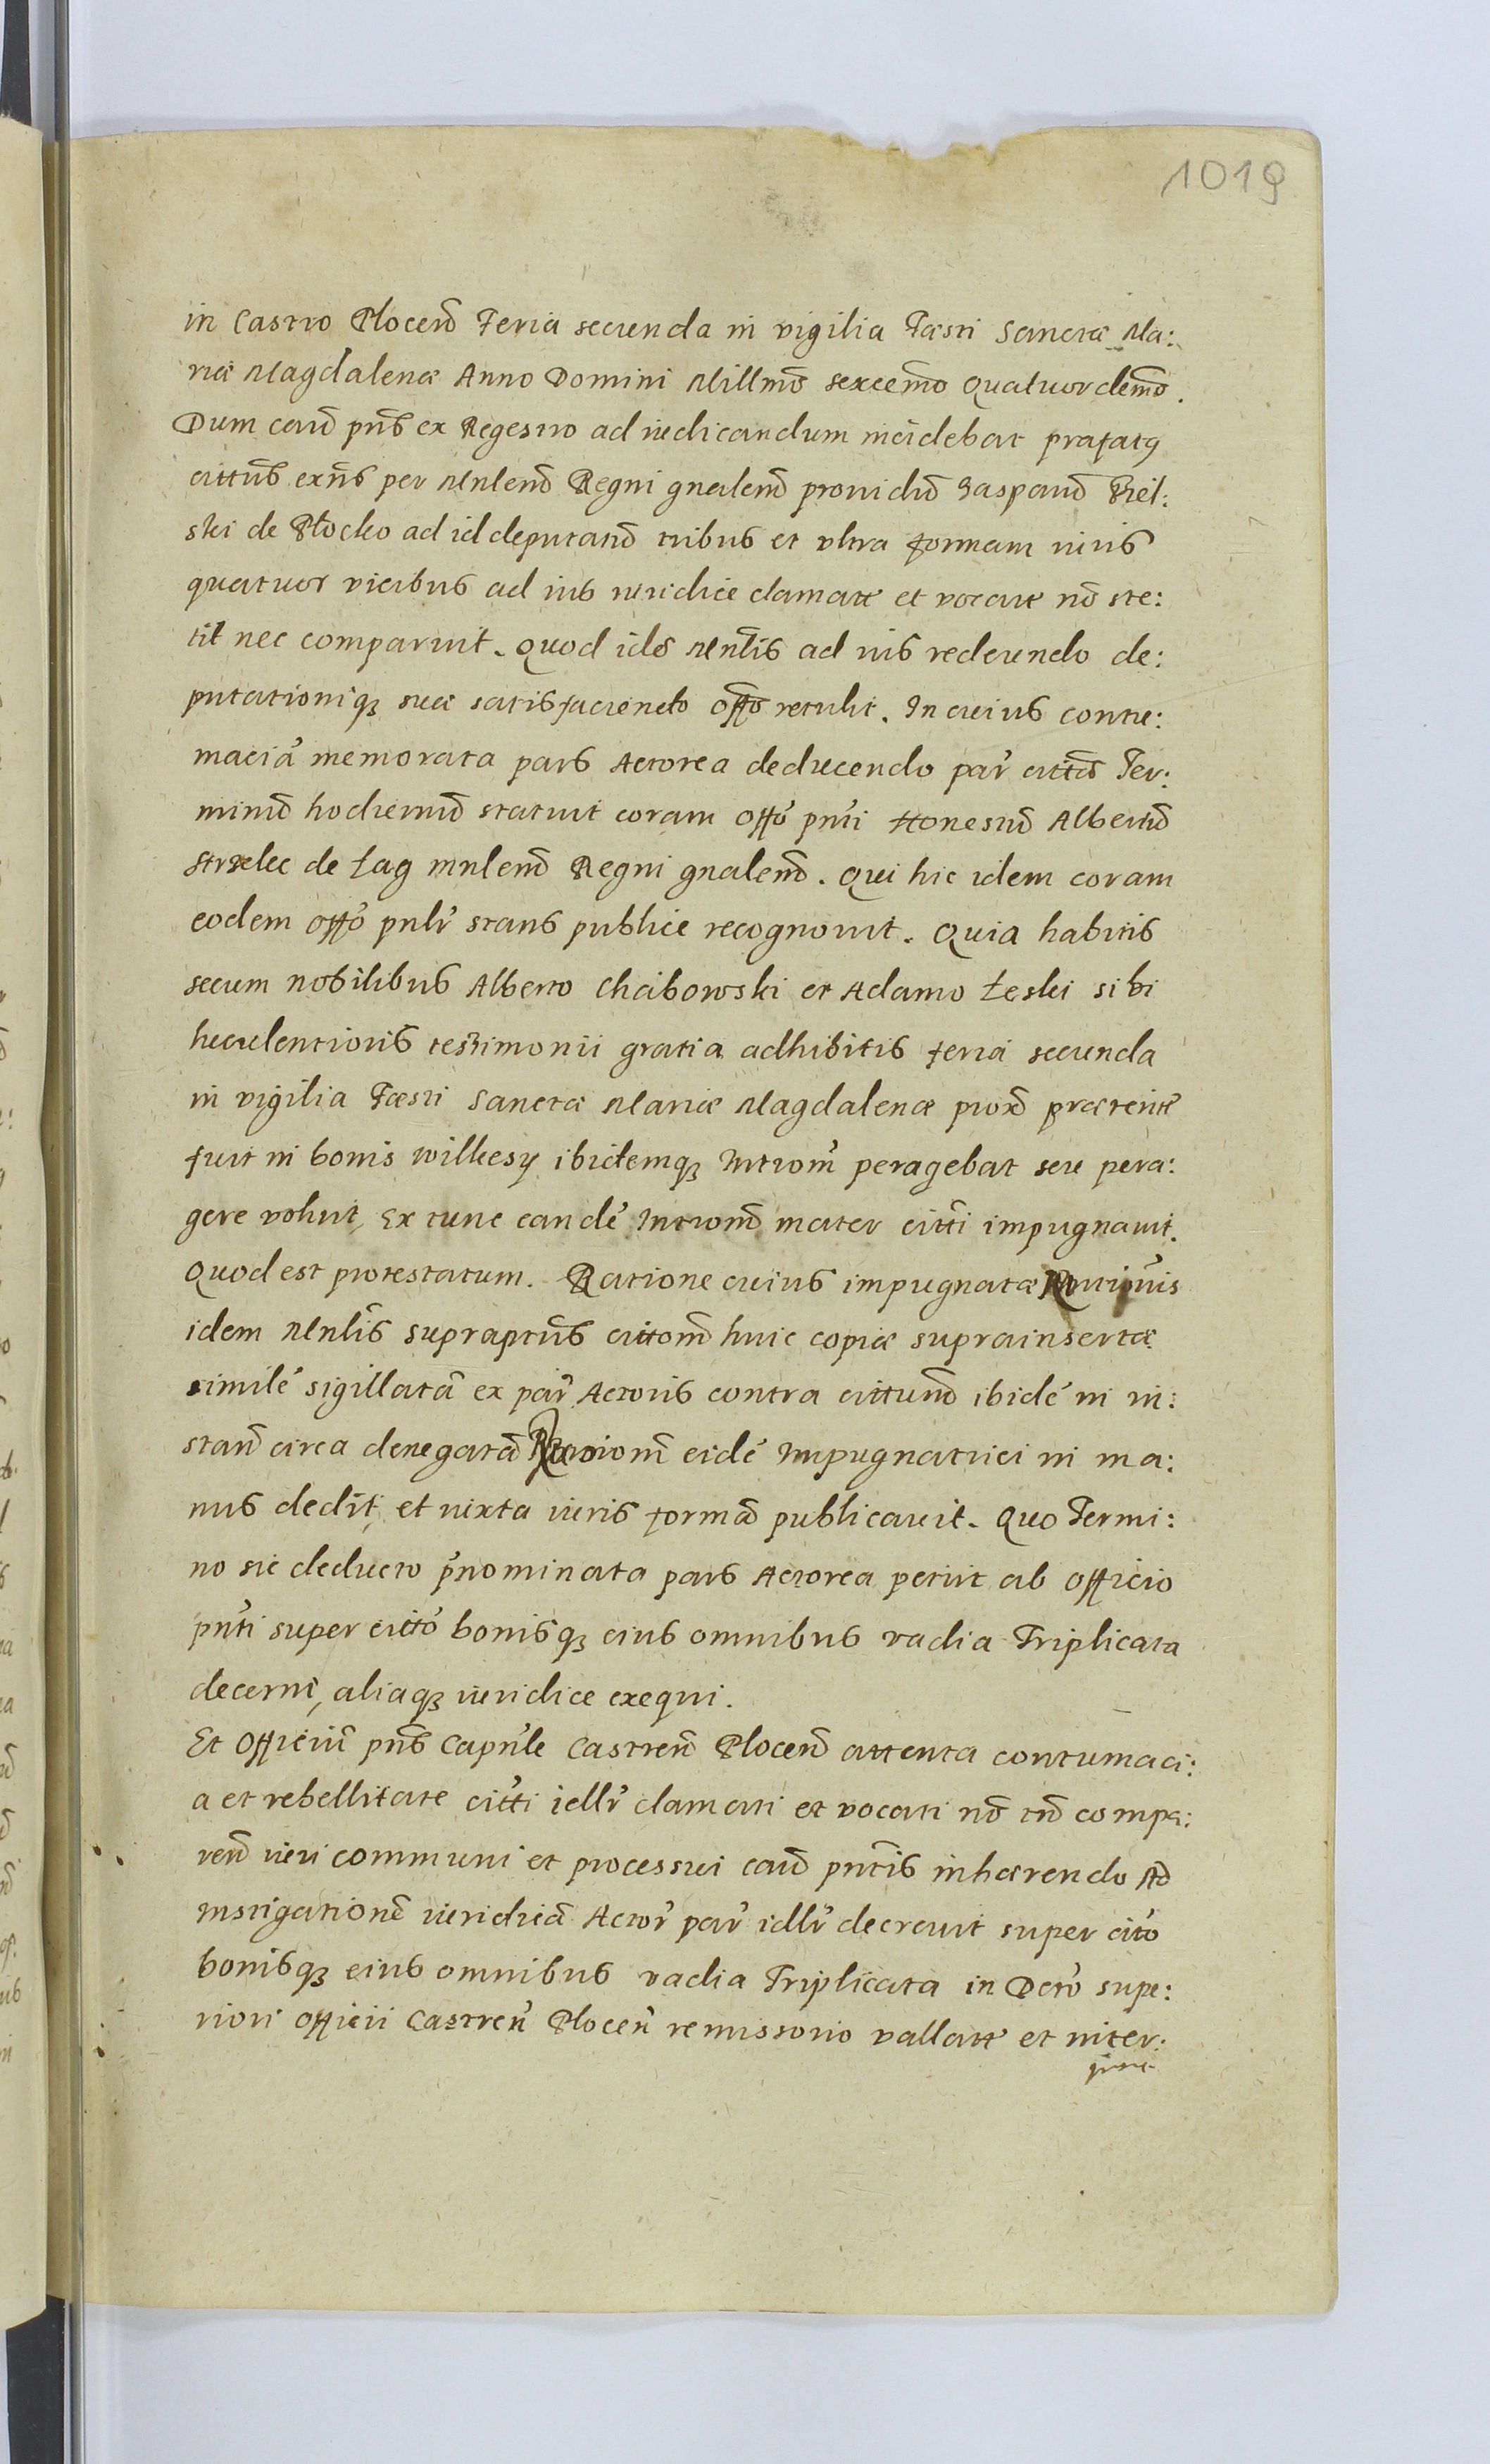 1019
in Castro Plocen̄ Feria secunda in vigilia Fæsti Sanctæ Ma:
riæ Magdalenæ Anno Domini Millm̄o sexcem̄o quatuordem̄o.
Dum cau͠ pn͠s ex Regestro ad iudicandum incidebat præfatꝯ
cittus͠ exn͠s per Mnlem͠ Regni gnalem͠ prouidu͠ Gaspanu͠ Biel:
ski de Płocko ad id deputatu͠ tribus et vltra formam iuris
quatuor vicibus ad ius iuridice clamatꝰ et vocatꝰ no͠ ste:
tit nec comparuit. Quod ide͠ Mnlis͠ ad ius redeundo de:
putationiqꝫ suæ satisfaciendo offo͠ retulit. In cuius contu:
macia͠ memorata pars Actorea deducendo par͠ citta͠ Ter:
minu͠ hodiernu͠ statuit coram offo͠ pn͠ti Honestu͠ Albertu͠
Strzelec de Łag mnlem͠ Regni gnalem͠. Qui hic idem coram
eodem offo͠ pnlr͠ stans publice recognouit. Quia habitis
secum nobilibus Alberto Chabowski et Adamo Łeski sibi
luculentioris testimonii gratia adhibitis feria secunda
in vigilia Fæsti Sanctæ Mariæ Magdalenæ prox͠ præterite͠
fuit in bonis Wilkesy ibidemqꝫ Intrōm͠ peragebat seu pera:
gere voluit, Ex tunc eande͠ Intrōm͠ mater citti͠ impugnauit.
Quod est protestatum. Ratione cuius impugnatæ
idem Mnlis͠ supraptus͠ cittom͠ huic copiæ suprainsertæ
simile͠ sigillata͠ ex par͠ Actoris contra cittum͠ ibide͠ in in:
stan͠ circa denegata͠ eide͠ Impugnatrici in ma:
nus dedit, et iuxta iuris forma͠ publicauit. Quo Termi:
no sic deducto p͠nominata pars Actorea petiit ab officio
pn͠ti super citto͠ bonisqꝫ eius omnibus vadia Triplicata
decerni, aliaqꝫ iuridice exequi.
Et Officiu͠ pn͠s Captn͠le Castren͠ Plocen͠ attenta contumaci:
a et rebellitate citti͠ idlr͠ clamati et vocati no͠ tn͠ compa:
ren͠ iuri communi et processui cau͠ pn͠tis inhærendo Ad
instigatione͠ iuridica͠ Actor͠ par͠ idlr͠ decreuit super citto͠
bonisqꝫ eius omnibus vadia Triplicata in Dcto͠ supe:
riori officii Castren͠ Plocen͠ remissorio vallatꝰ et inter: